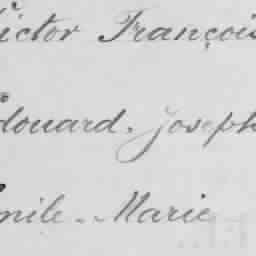 Victor François
Édouard. Joseph
Émile.. Marie